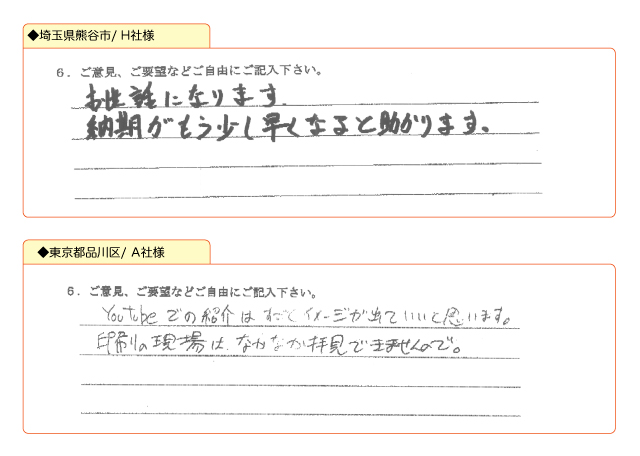 ◆埼玉県熊谷市/ H社様
6．ご意見、ご要望などご自由にご記入下さい。
お世話になります.
納期がもう少し早くなると助かります。
◆東京都品川区/ A社様
6．ご意見、ご要望などご自由にご記入下さい。
Youtubeでの紹介はすごくイメージが出ていいと思います。
印刷の現場は、なかなか拝見できませんので。